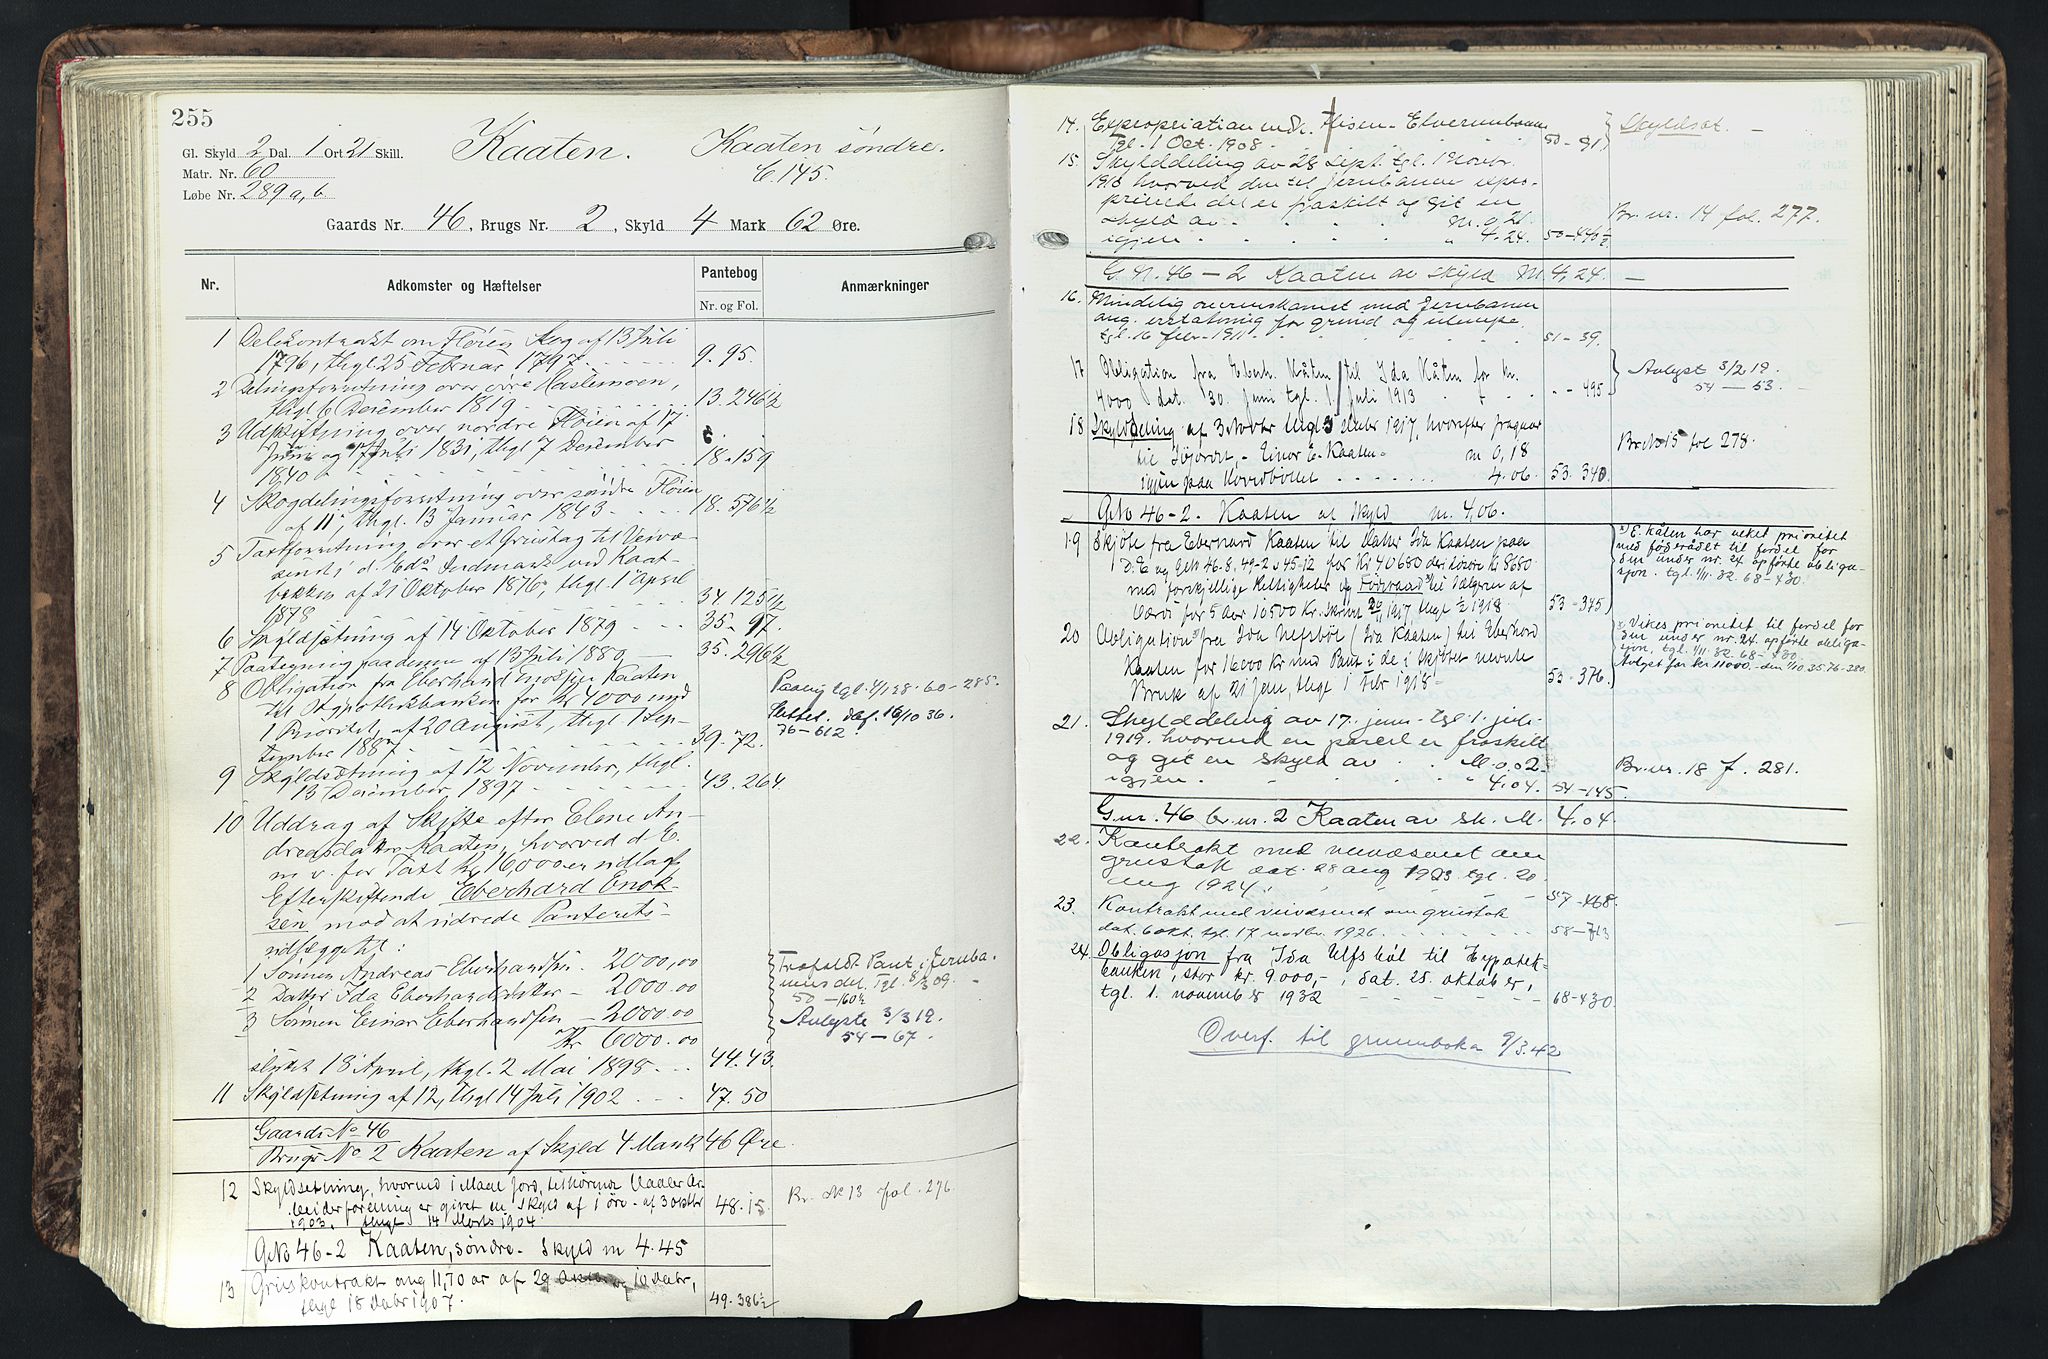 255
Gl. Skyld 2 Dal. 1 Ort 21 Skill.
Matr. Nr. 60
Løbe Nr. 289 a, b
Kaaten. Kaaten søndre.
C. 145.
Gaards Nr. 46, Brugs Nr. 2, Skyld 4 Mark 62 Øre.
Nr. Adkomster og Hæftelser Pantebog Anmærkninger
Nr. og Fol.
1 Delekontrakt om Fløiens Skog af 13 Juli
1796, thgl. 25 Februar 1797 9. 95.
2 Delingsforretning over øvre Haslemoen,
thgl 6 December 1819 13. 246½
3 Udskiftning over nordre Fløien af 17
Juni og Juli 1831, thgl 7 December
1840 18-159
4 Skogdelingsforretning over søndre Fløien
af 11, thgl. 13 Januar 1843 18. 576½
5 Taxtforretning over et Grustag til Veivæ-
senet, d. ved Kaat-
bækken af 21 Oktober 1876, thgl 1 April
1878 34. 125½
6 Skyldsetning af 14 Oktober 1879 35-97.
7 Paategning paa denne af 13 Juli 1880 35. 296½
8 Obligation fra Eberhard Kaaten
til Hypothekbanken for Kr 4000 med
1 Prioritet, af 20 August, thgl 1 Sep-
tember 1887 39. 72.
76-612
9 Skyldsætning af 12 November, thgl.
13 December 1897 43. 264
10 Uddrag af Skifte efter Elene An-
dreasdatter Kaaten, hvorved d. E.
m. v. for Taxt Kr 16,000 er udlagt
Efterskiftende Eberhard Enok-
sen mod at udrede Panterets-
udlægget til:
1 Sønnen Andreas Eberhardsen 2000,00
2 Datter Ida Eberhardsdatter - 2000.00
3 Sønnen Einar Eberhardsen - 2000.00
Kr 6000.00
Frafaldt Pant i Jernba-
nens del. Tgl. 8/3 09.
50-160½
Avlyste 3/3 19.
54-67.
sluttet 18 April, thgl. 2 Mai 1898 44. 43.
11 Skyldsetning af 12, thgl 14 Juli 1902 47. 50
Gaards No 46
Brugs No 2 Kaaten af Skyld 4 Mark 46 Øre.
12 Skyldsetning, hvorved 1 Maal Jord, tilhørende Vaaler Ar-
beiderforening er givet en Skyld af 1 øre - af 3 oktbr
1903, thgl 14 Marts 1904 48. 15 Br. N 13 fol. 276.
GNo 46-2 Kaaten, søndre - Skyld m 4.45
13 Gruskontrakt ang 11,70 ar af 29 og 10 Decbr,
thgl 18 Decbr 1907. 49. 386½
14. Expropriation vedk. Flisen-Elverumbanen
Tgl. 1 Oct. 1908. 50-91 Skyldsat.
15. Skylddeling av 28 Sept. tgl. 1 Novbr.
1913 hvorved den til Jernbanen expro-
prierte del er fraskilt og git en
skyld av M. 0.21
igjen " 4.24. 50-440½ Br. nr. 14 fol. 277.
G. N. 46-2 Kaaten av skyld M. 4,24.
16. Mindelig overenskomst med Jernbanen
ang. erstatning for grund og ulempe
tgl. 16 febr. 1911 51-39.
17 Obligation fra Eberh. Kåten til Ida Kåten for kr.
4000 dat. 30. juni tgl. 1. juli 1913 " - 495 Avlyst 3/2 19.
54-53.
18 Skylddeling af 3 Novbr thgl 3 Decbr 1917, hvorefter fragaar
til Einar E. Kaaten M 0,18
igjen paa Hovedbøllet 4.06. 53. 340 Br No 15 fol 278.
GNo 46-2. Kaaten af Skyld M. 4,06.
19 Skjøte fra Eberhard Kaaten til Datter Ida Kaaten paa
D. E og GNo 46-8, 49-2 & 45-12 for Kr 40680 deri Løsøre Kr 8680
med forskjellige Rettigheter og Føderaad til Sælgeren af
Værdi for 5 Aar 10500 Kr. 1917, thgl 1918 53-345
x) E. Kåten har veket prioritet
med føderådet til fordel for
den under nr. 24 opførte obliga-
sjon. tgl. 1/11. 32. 68-430.
20 Obligation fra Ida Ulfsbøl (Ida Kaaten) til Eberhard
Kaaten for 16000 Kr med Pant i de i Skjøtet nevnte
Bruk af 21 Jan, thgl 1 Febr 1918 53-376
x. Vikes prioritet til fordel for
den under nr. 24 opførte obliga-
sjon, tgl. 1/11. 32. 68-430.
Avlyst for kr. 11000.- den 1/10 35 76-280.
21. Skylddeling av 17. juni - tgl. 1. juli
1919. hvorved en parcel er fraskilt
og git en skyld av M. 0.02
igjen " 4.04. 54-145. Br. nr. 18 f. 281.
G. nr. 46 br. nr. 2 Kaaten av sk. M. 4.04.
22. Kontrakt med veivæsenet om
grustak dat. 28 aug 1923 tgl. 20.
aug 1924. 57-468.
23. Kontrakt med veivæsenet om grustak
dat. 6 okt. tgl. 17 novbr. 1926 58-713
24. Obligasjon fra Ida Ulfsbøl til Hypotek-
banken, stor kr. 9.000,-, dat. 25. oktober,
tgl. 1. november 1932 68-430.
Overf. til grunnboka 9/3.42